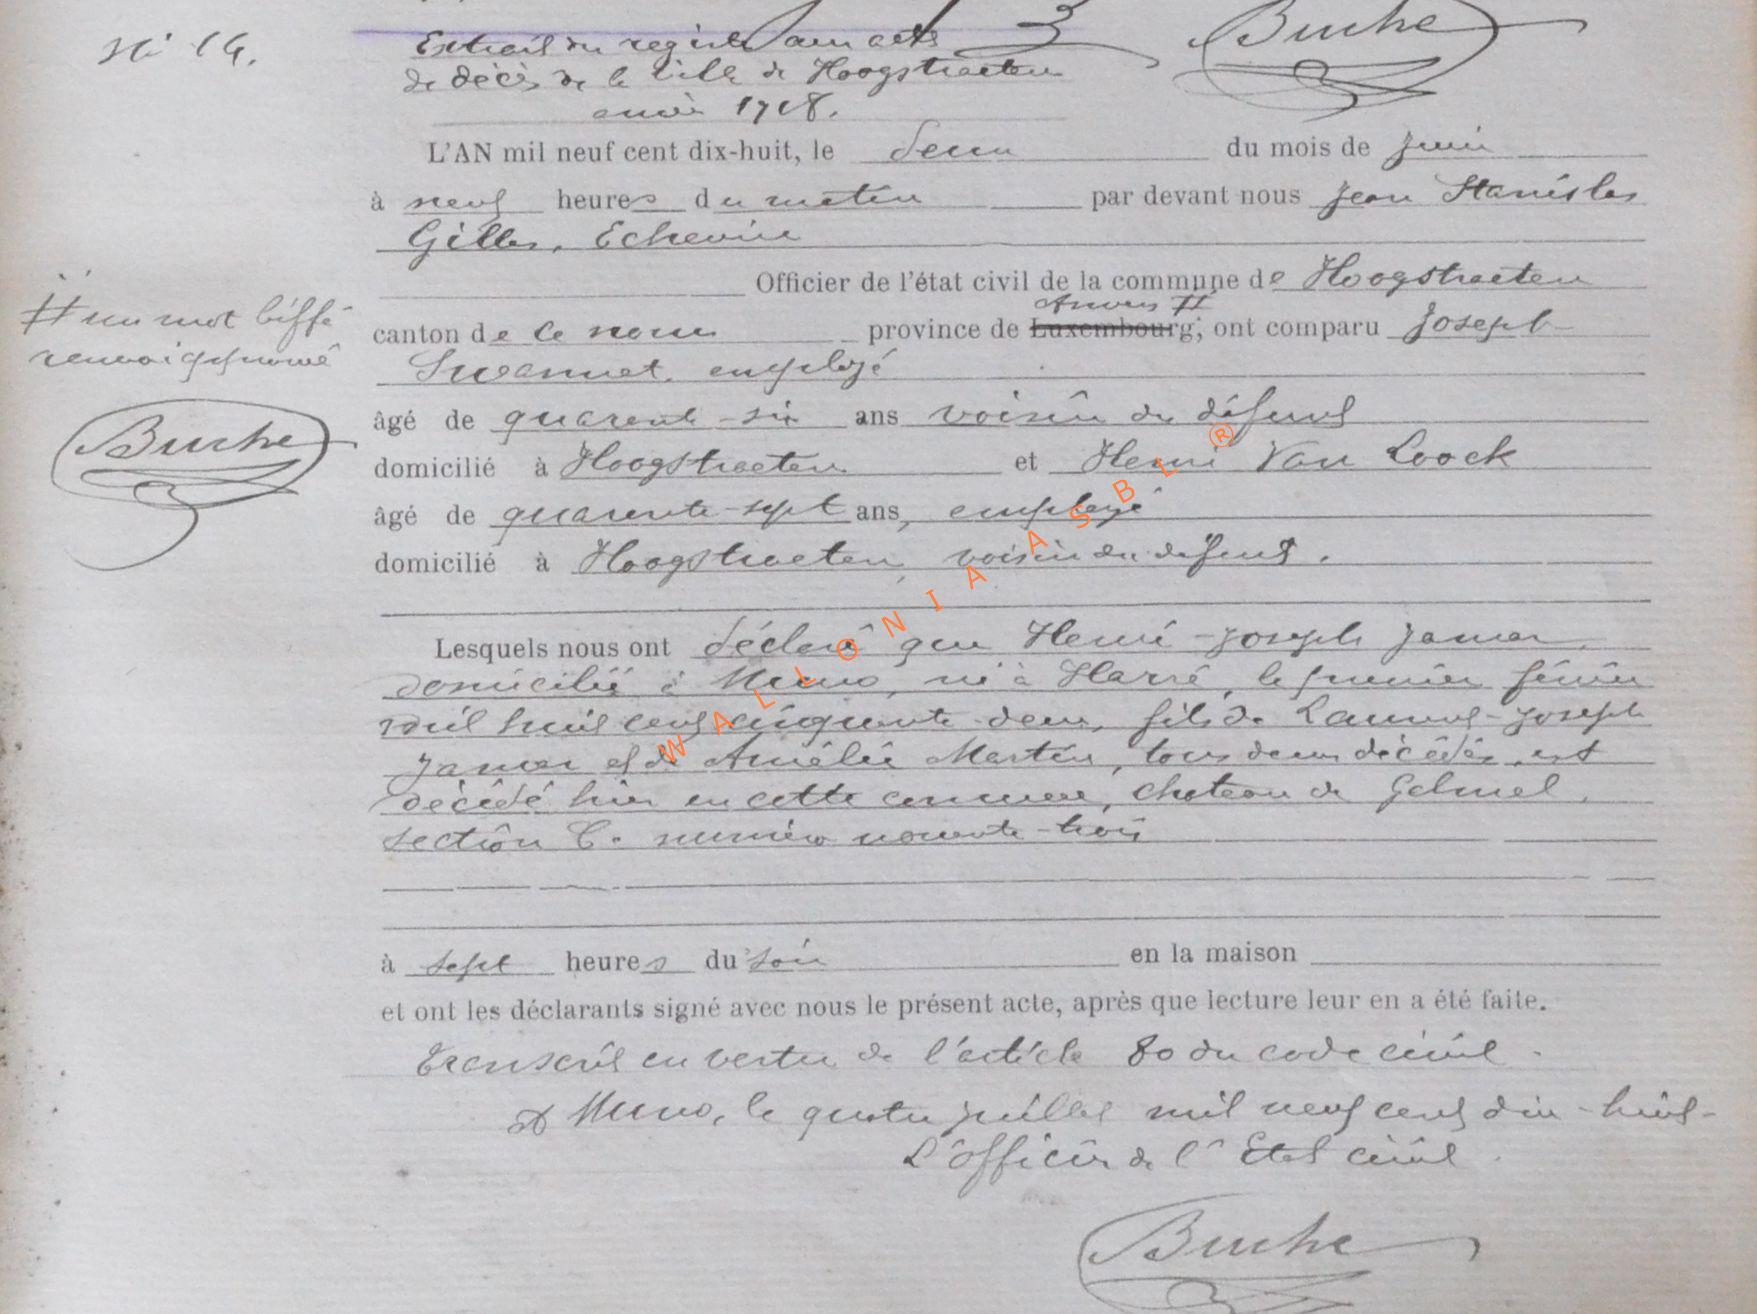 N° 14.
Extrait du registre aux actes
Buche
de décès de la ville de Hoogstraeten
année 1918.
L'AN mil neuf cent dix-huit, le deux du mois de juin
à neuf heures du matin par devant nous Jean Stanislas
Gilles, Echevin
Officier de l'état civil de la commune de Hoogstraeten
Anvers #
canton de ce nom province de Luxembourg, ont comparu Joseph
# un mot biffé
renvoi approuvé
Buche
Swannet, employé
âgé de quarante-six ans voisin du défunt
domicilié à Hoogstraeten et Henri Van Loock
âgé de quarante-sept ans, employé
domicilié à Hoogstraeten, voisin du défunt.
Lesquels nous ont déclaré que Henri-Joseph Jamar,
domicilié à Muno, né à Harre, le premier février
mil huit cent cinquante-deux, fils de Laurent-Joseph
Jamar et de Amélie Martin, tous deux décédés, est
décédé hier en cette commune, chateau de Gelmel,
section C. numéro nonante-trois
à sept heures du soir en la maison
et ont les déclarants signé avec nous le présent acte, après que lecture leur en a été faite.
Transcrit en vertu de l'article 80 du code civil.
A Muno, le quatre juillet mil neuf cent dix-huit-
L'officier de l'Etat civil.
Buche
WALLONIA ASBL ®